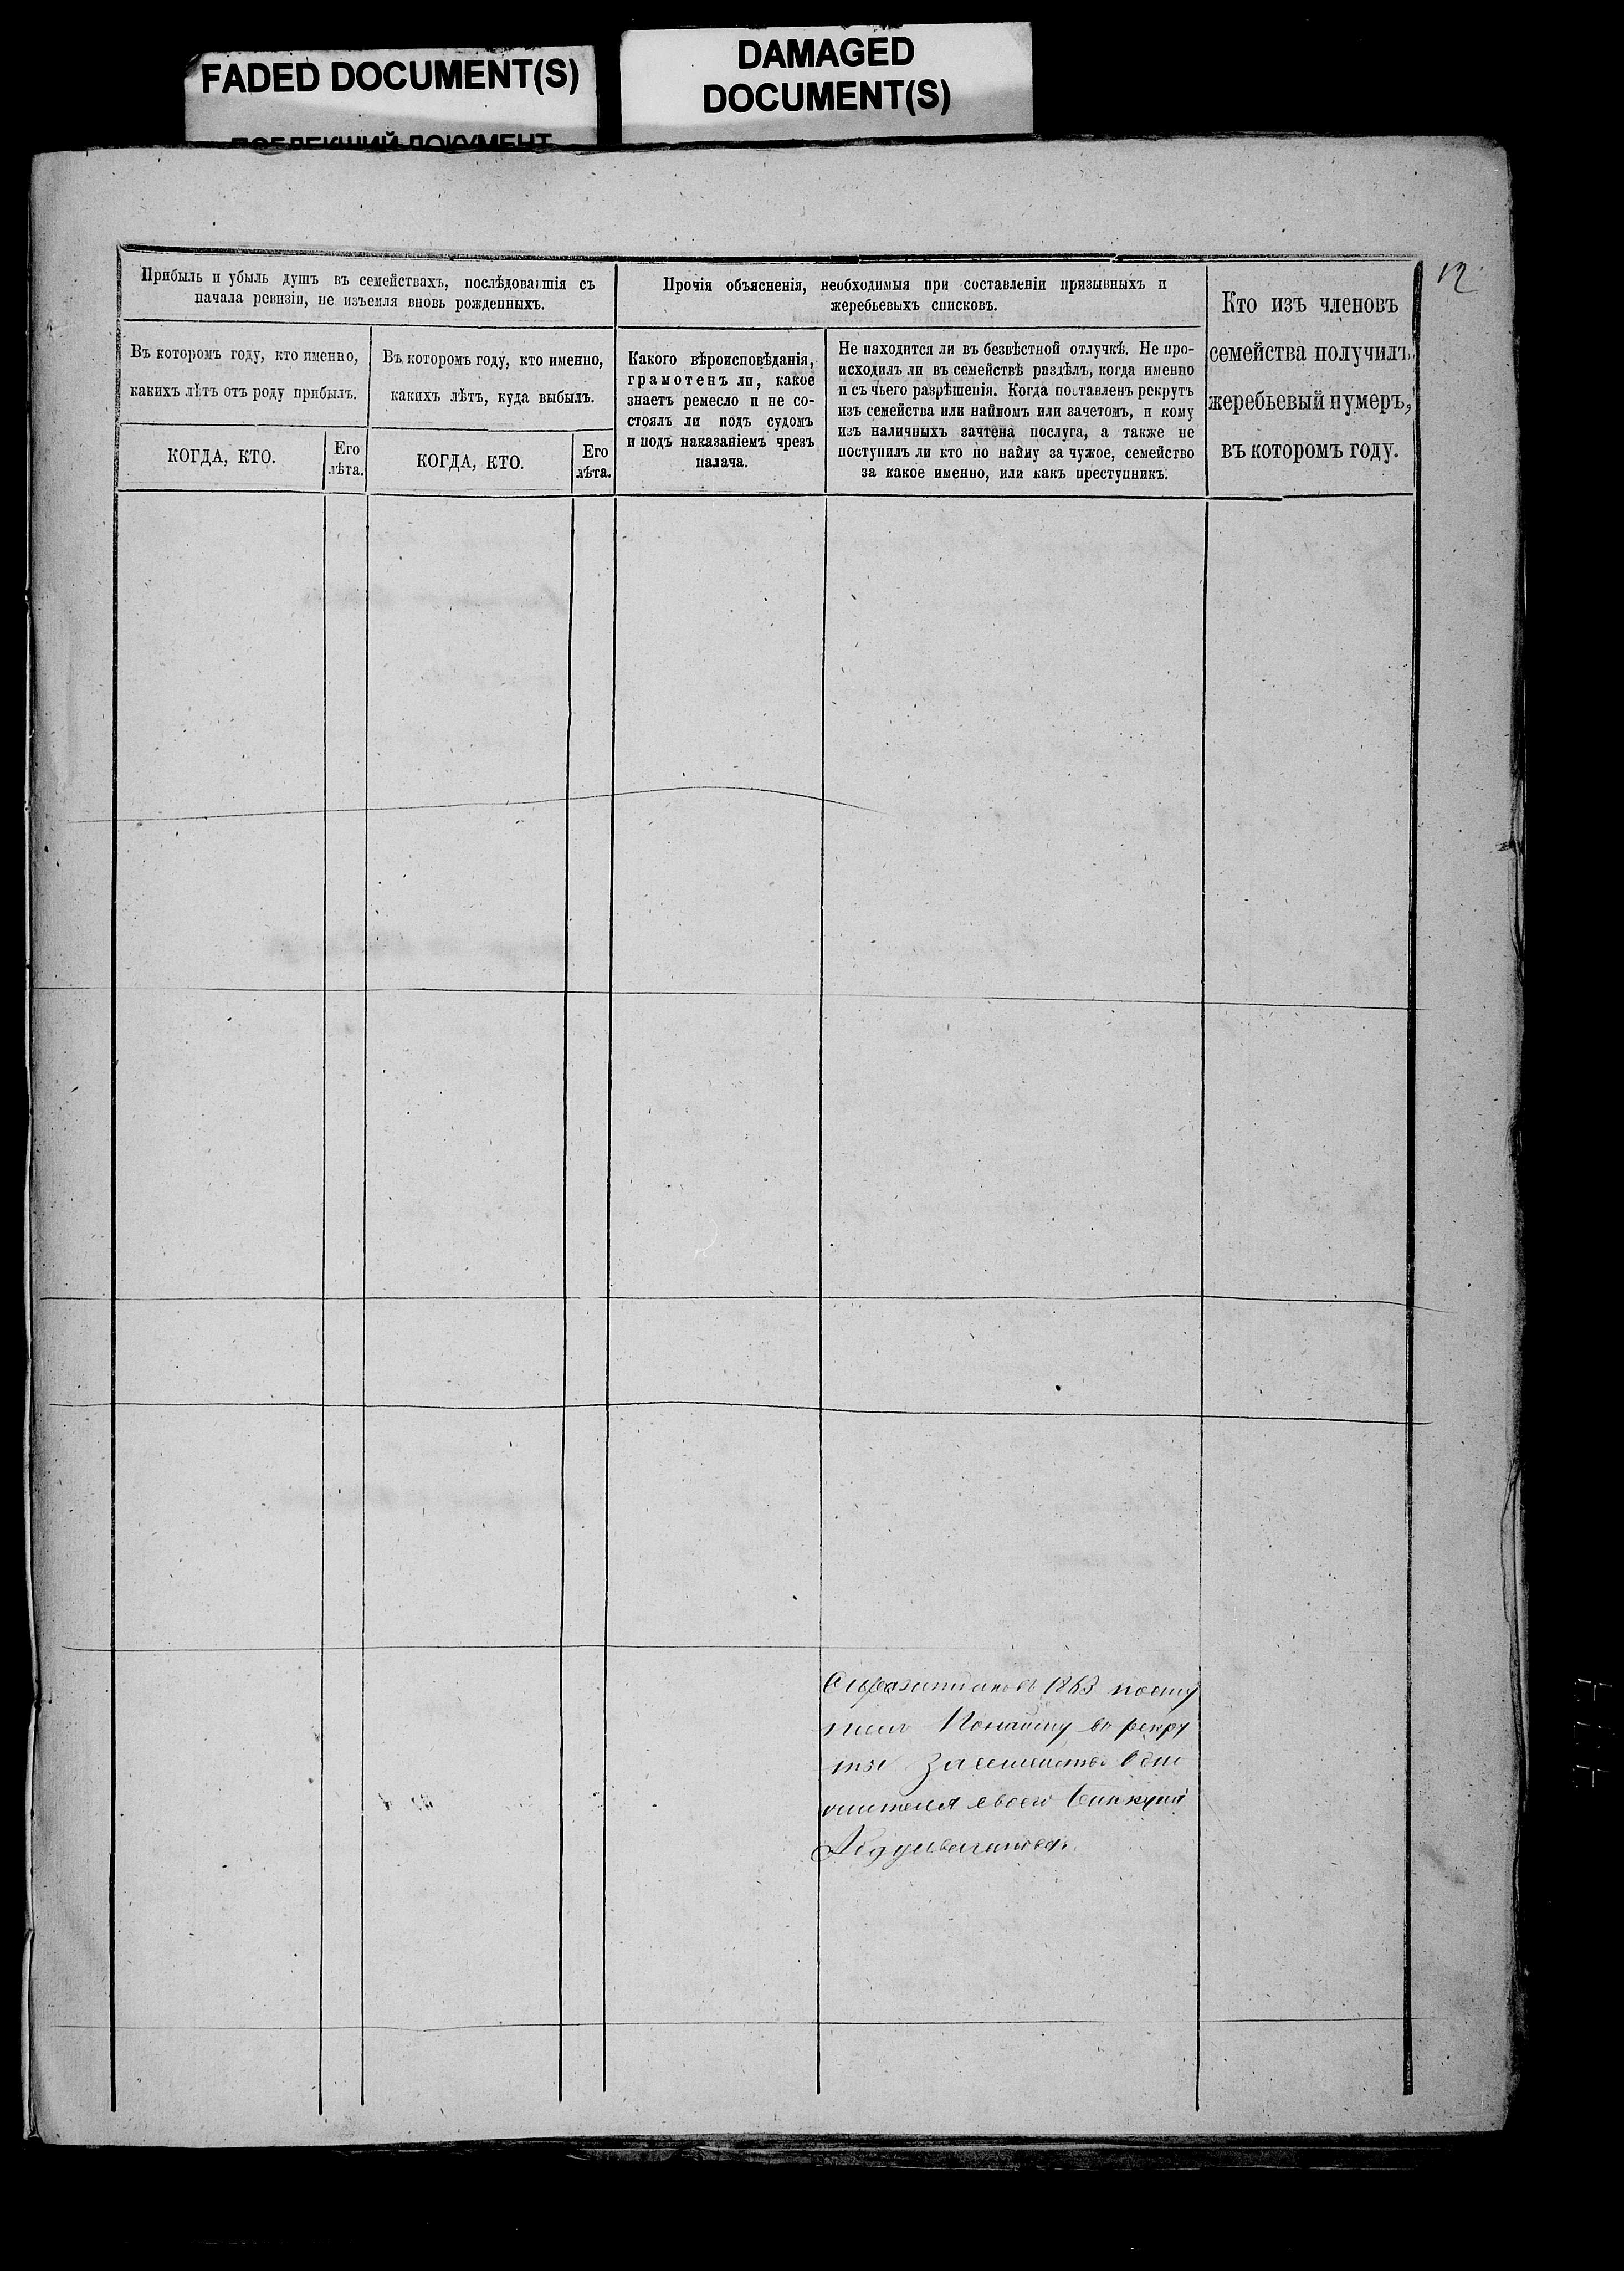 FADED DOCUMENT(S)
ПОБЛЕКШИЙ ДОКУМЕНТ
DAMAGED
DOCUMENT(S)
12
Прибыль и убыль душъ въ семействахъ, послѣдовавшія съ
начала ревизіи, не изъемля вновь рожденныхъ.
Въ которомъ году, кто именно,
какихъ лѣтъ отъ роду прибылъ.
КОГДА, КТО.
Его
лѣта.
Въ которомъ году, кто именно,
какихъ лѣтъ, куда выбылъ.
КОГДА, КТО.
Его
лѣта.
Прочія объясненія, необходимыя при составленіи призывныхъ и
жеребьевыхъ списковъ.
Какого вѣроисповѣданія,
грамотенъ ли, какое
знаетъ ремесло и не со-
стоялъ ли подъ судомъ
и подъ наказаніемъ чрезъ
палача.
Не находится ли въ безвѣстной отлучкѣ. Не про-
исходилъ ли въ семействѣ раздѣлъ, когда именно
и съ чьего разрѣшенія. Когда поставленъ рекрутъ
изъ семейства или наймомъ или зачетомъ, и кому
изъ наличныхъ зачтена послуга, а также не
поступилъ ли кто по найму за чужое, семейство
за какое именно, или какъ преступникъ.
Кто изъ членовъ
семейства получилъ
жеребьевый нумеръ,
въ которомъ году.
1863 посту
пилъ Понайму въ рекру
ты За семейство Одно
своего